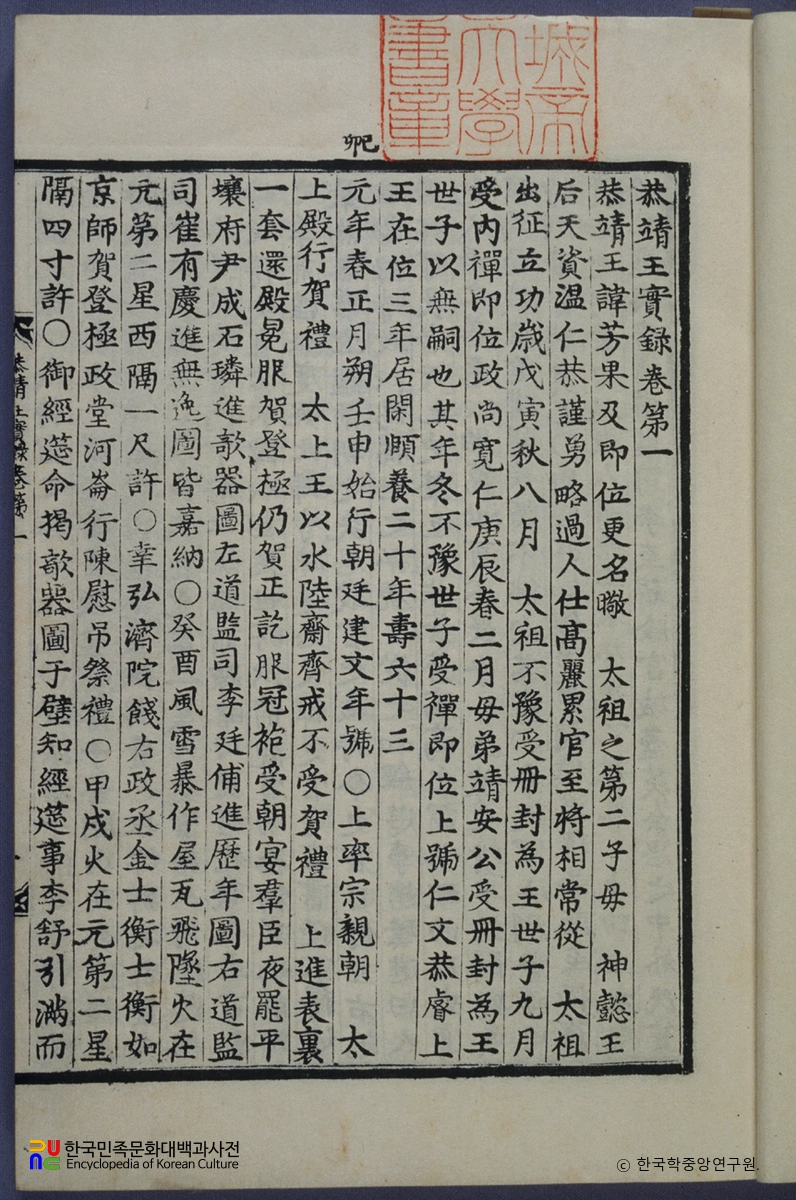 城帝
大學
書章
己卯
恭靖王實録卷第一
恭靖王諱芳果及即位更名曔 太祖之第二子母 神懿王
后天資温仁恭謹勇略過人仕髙麗累官至将相常從 太祖
出征立功歳戊寅秋八月 太祖不豫受冊封為王世子九月
受内禪即位政尚寛仁庚辰春二月母弟靖安公受冊封為王
世子以無嗣也其年冬不豫世子受禪即位上號仁文恭睿上
王在位三年居閑順養二十年壽六十三
元年春正月朔壬申始行朝廷建文年號○上率宗親朝 太
上殿行賀禮 太上王以水陸齋齊戒不受賀禮 上進表裏
一套還殿冕服賀登極仍賀正訖服冠袍受朝宴羣臣夜罷平
壤府尹成石璘進欹器圖左道監司李廷俌進歷年圖右道監
司崔有慶進無逸圖皆嘉納○癸酉風雪暴作屋瓦飛墜火在
元第二星西隔一尺許○幸弘濟院餞右政丞金士衡士衡如
京師賀登極政堂河崙行陳慰吊祭禮○甲戌火在元第二星
隔四寸許○御經筵命揭欹器圖于壁知經筵事李舒引満而
恭靖王實錄卷第一
한국민족문화대백과사전
Encyclopedia of Korean Culture
ⓒ 한국학중앙연구원.